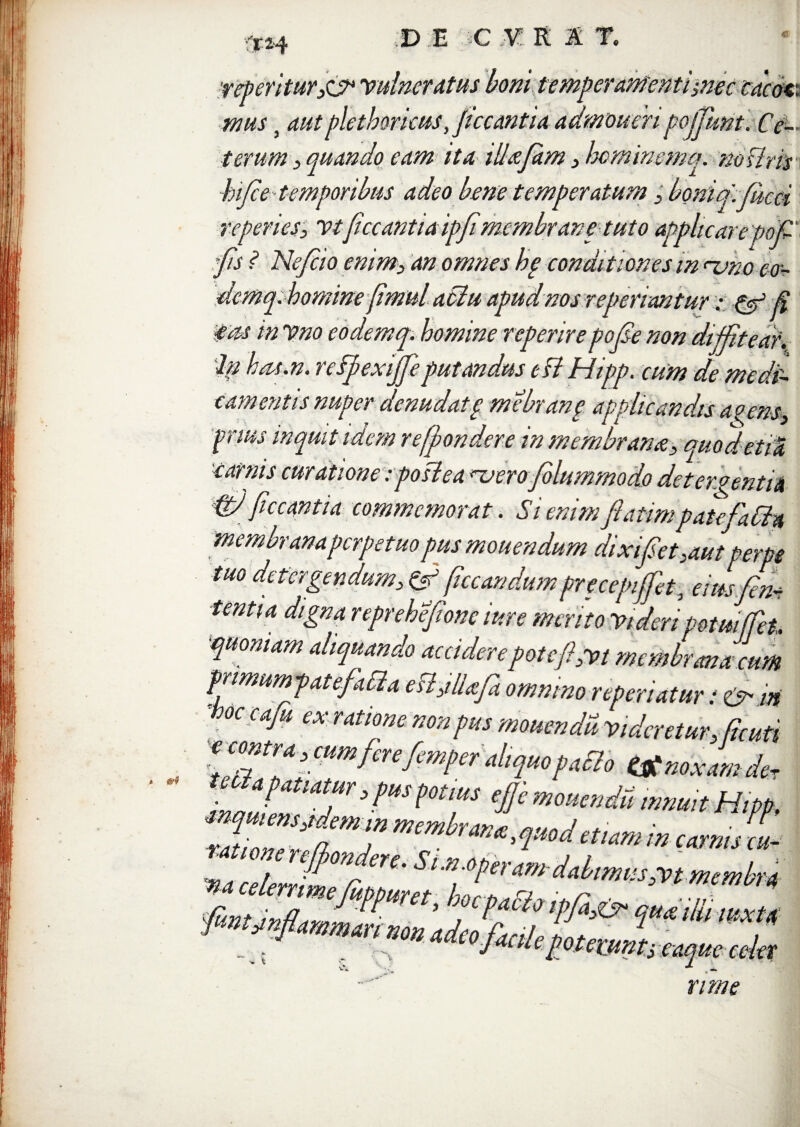 124 DE CVRAT.
reperitur,& vulneratus boni temperamenti;nec cacoc
mus, aut plethoricus, siccantia admoueri possunt. Ce-
terum, quando eam ita illæsam, hominemq. nostris
hisce temporibus adeo bene temperatum, boniq. succi
reperies, vt siccantia ipsi membranę tuto applicare pos-
sis? Nescio enim, an omnes hę conditiones in vno eo-
demq. homine simul actu apud nos reperiantur: & si
eas in vno eodemq. homine reperire posse non diffitear.
In has.n. respexisse putandus est Hipp. cum de medi-
camentis nuper denudatę mēbranę applicandis agens,
prius inquit idem respondere in membrana, quod etiā
carnis curatione: postea vero solummodo detergentia
& siccantia commemorat. Si enim statim patefacta
membrana perpetuo pus mouendum dixisset,aut perpe
tuo detergendum, & siccandum pręcepisset, eius sen-
tentia digna reprehēsione iure merito videri potuisset.
quoniam aliquando accidere potest,vt membrana cum
primum patefacta est,illæsa omnino reperiatur: & in
hoc casu ex ratione non pus mouendū videretur, sicuti
e contra, cum fere semper aliquo pacto & noxam de-
tecta patiatur, pus potius esse mouendū innuit Hipp.
inquiens,idem in membrana,quod etiam in carnis cu-
ratione respondere. Si.n.operam dabimus,vt membra
na celerrime suppuret, hoc pacto ipsa,& quæ illi iuxta
sunt,inflammari non adeo facile poterunt; eaque celer
rime